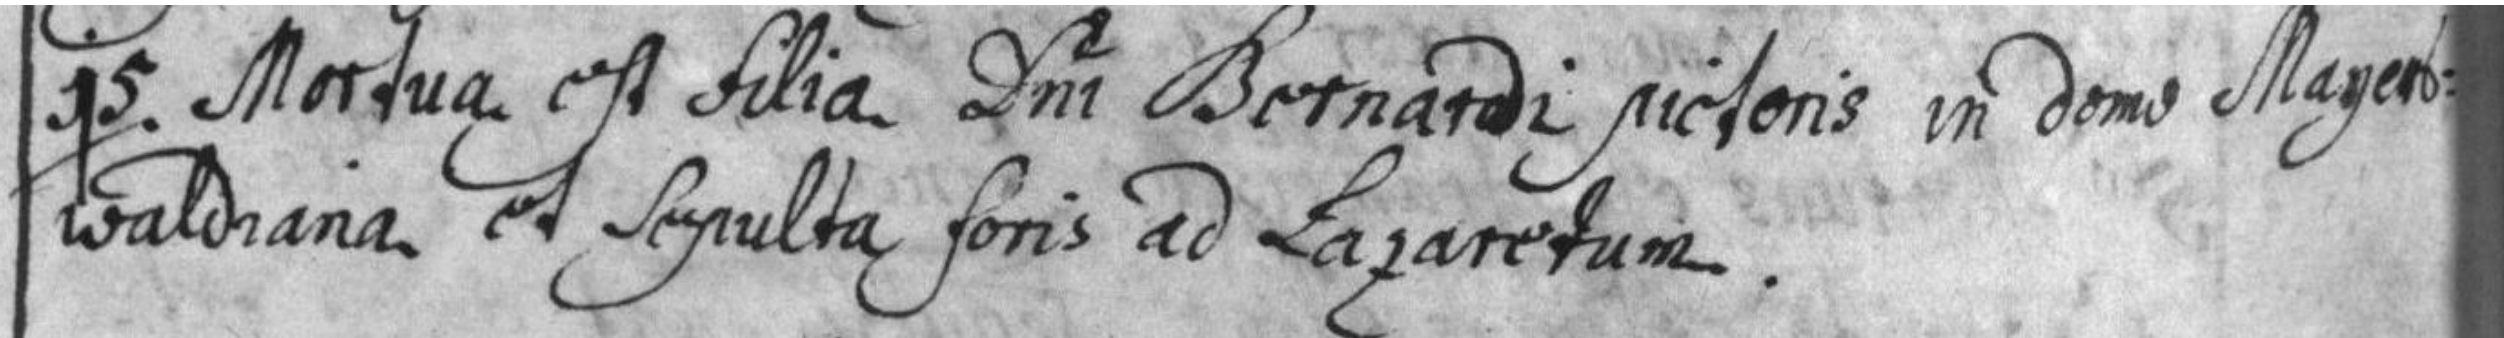 15. Mortua est filia Dni Bernardi pictoris in domo Mayers:
waldiana et sepulta foris ad Lazaretum.